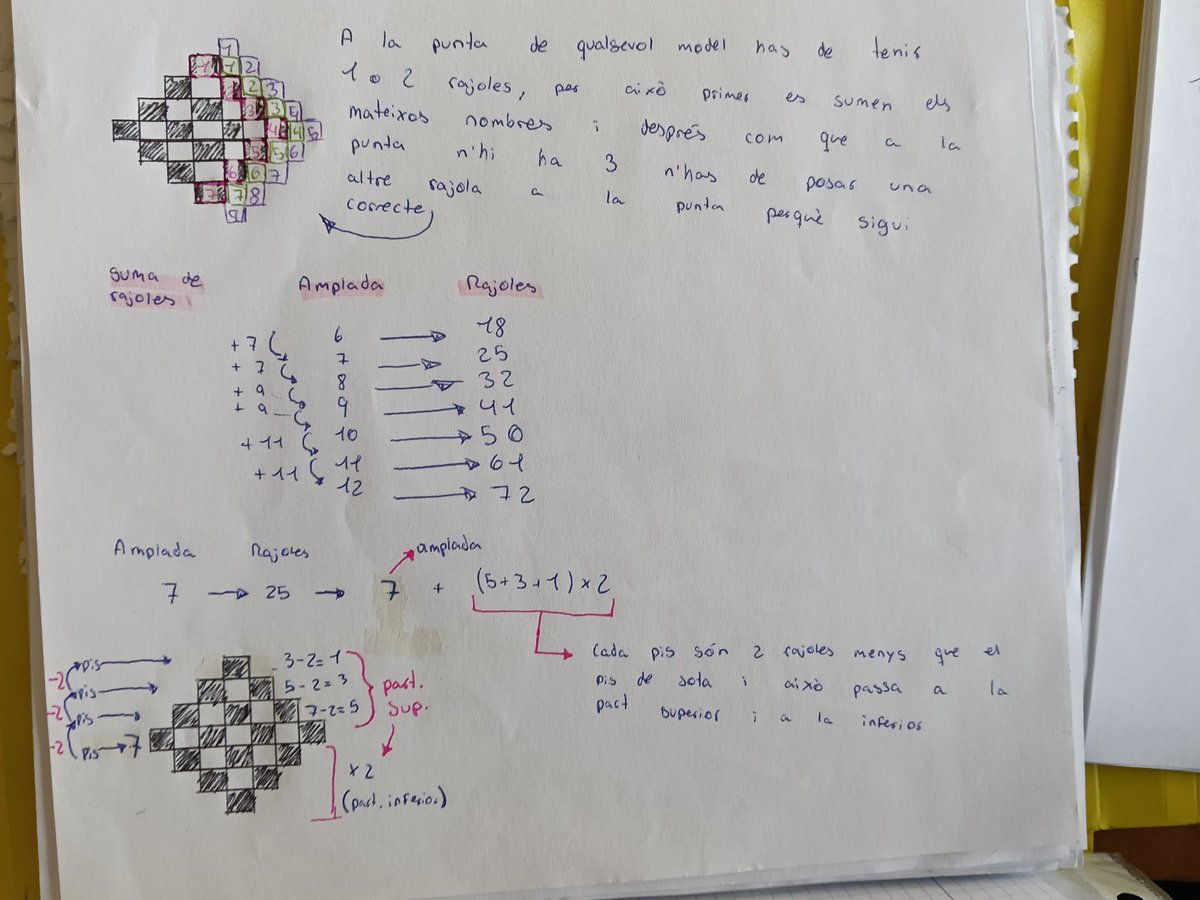 A la punta de qualsevol model has de tenir
1 o 2 rajoles, per això primer es sumen els
mateixos nombres i després com que a la
punta n'hi ha 3 n'has de posar una
altre rajola a la punta perquè sigui
correcte
1
1 1 2
1 2 3
3 3 4
4 4 5
5 5 6
6 6 7
7 7 8
9
suma de rajoles Amplada Rajoles
6 → 18
+7 7 → 25
+7 8 → 32
+9 9 → 41
+9 10 → 50
+11 11 → 61
+11 12 → 72
Amplada Rajoles amplada
7 → 25 → 7 + (5+3+1) x 2
Cada pis són 2 rajoles menys que el
pis de sota i això passa a la
part superior i a la inferior
pis 3-2=1
-2 pis 5-2=3
-2 pis 7-2=5
-2 pis → 7
part.
sup.
x2
(part. inferior)